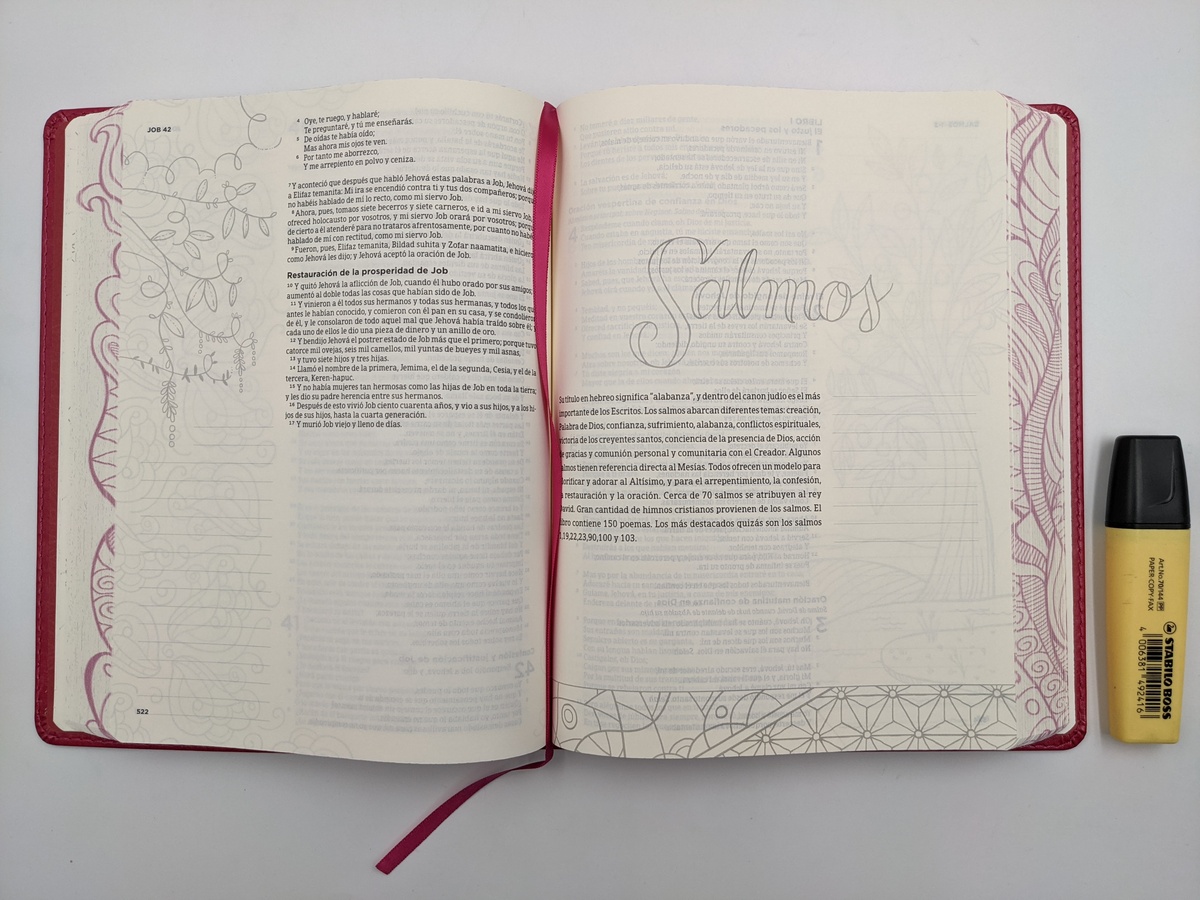 JOB 42
4 Oye, te ruego, y hablaré;
Te preguntaré, y tú me enseñarás.
5 De oídas te había oído;
Mas ahora mis ojos te ven.
6 Por tanto me aborrezco,
Y me arrepiento en polvo y ceniza.
7 Y aconteció que después que habló Jehová estas palabras a Job, Jehová
a Elifaz temanita: Mi ira se encendió contra ti y tus dos compañeros;
no habéis hablado de mí lo recto, como mi siervo Job.
8 Ahora, pues, tomaos siete becerros y siete carneros, e id a mi siervo Job,
ofreced holocausto por vosotros, y mi siervo Job orará por vosotros;
de cierto a él atenderé para no trataros afrentosamente, por cuanto no
hablado de mí con rectitud, como mi siervo Job.
9 Fueron, pues, Elifaz temanita, Bildad suhita y Zofar naamatita, e
como Jehová les dijo; y Jehová aceptó la oración de Job.
Restauración de la prosperidad de Job
10 Y quitó Jehová la aflicción de Job, cuando él hubo orado por sus amigos;
aumentó al doble todas las cosas que habían sido de Job.
11 Y vinieron a él todos sus hermanos y todas sus hermanas, y todos los
antes le habían conocido, y comieron con él pan en su casa, y se
de él, y le consolaron de todo aquel mal que Jehová había traído sobre él;
cada uno de ellos le dio una pieza de dinero y un anillo de oro.
12 Y bendijo Jehová el postrer estado de Job más que el primero; porque
catorce mil ovejas, seis mil camellos, mil yuntas de bueyes y mil asnas,
13 y tuvo siete hijos y tres hijas.
14 Llamó el nombre de la primera, Jemima, el de la segunda, Cesia, y el de la
tercera, Keren-hapuc.
15 Y no había mujeres tan hermosas como las hijas de Job en toda la tierra;
y les dio su padre herencia entre sus hermanos.
16 Después de esto vivió Job ciento cuarenta años, y vio a sus hijos, y a los hi-
jos de sus hijos, hasta la cuarta generación.
17 Y murió Job viejo y lleno de días.
522
Salmos
Su título en hebreo significa "alabanza", y dentro del canon judío es el más
importante de los Escritos. Los salmos abarcan diferentes temas: creación,
Palabra de Dios, confianza, sufrimiento, alabanza, conflictos espirituales,
victoria de los creyentes santos, conciencia de la presencia de Dios, acción
de gracias y comunión personal y comunitaria con el Creador. Algunos
salmos tienen referencia directa al Mesías. Todos ofrecen un modelo para
glorificar y adorar al Altísimo, y para el arrepentimiento, la confesión,
la restauración y la oración. Cerca de 70 salmos se atribuyen al rey
David. Gran cantidad de himnos cristianos provienen de los salmos. El
libro contiene 150 poemas. Los más destacados quizás son los salmos
1,19,22,23,90,100 y 103.
Art.No.70/144
PAPER·COPY·FAX
STABILO BOSS
4 006381 492416